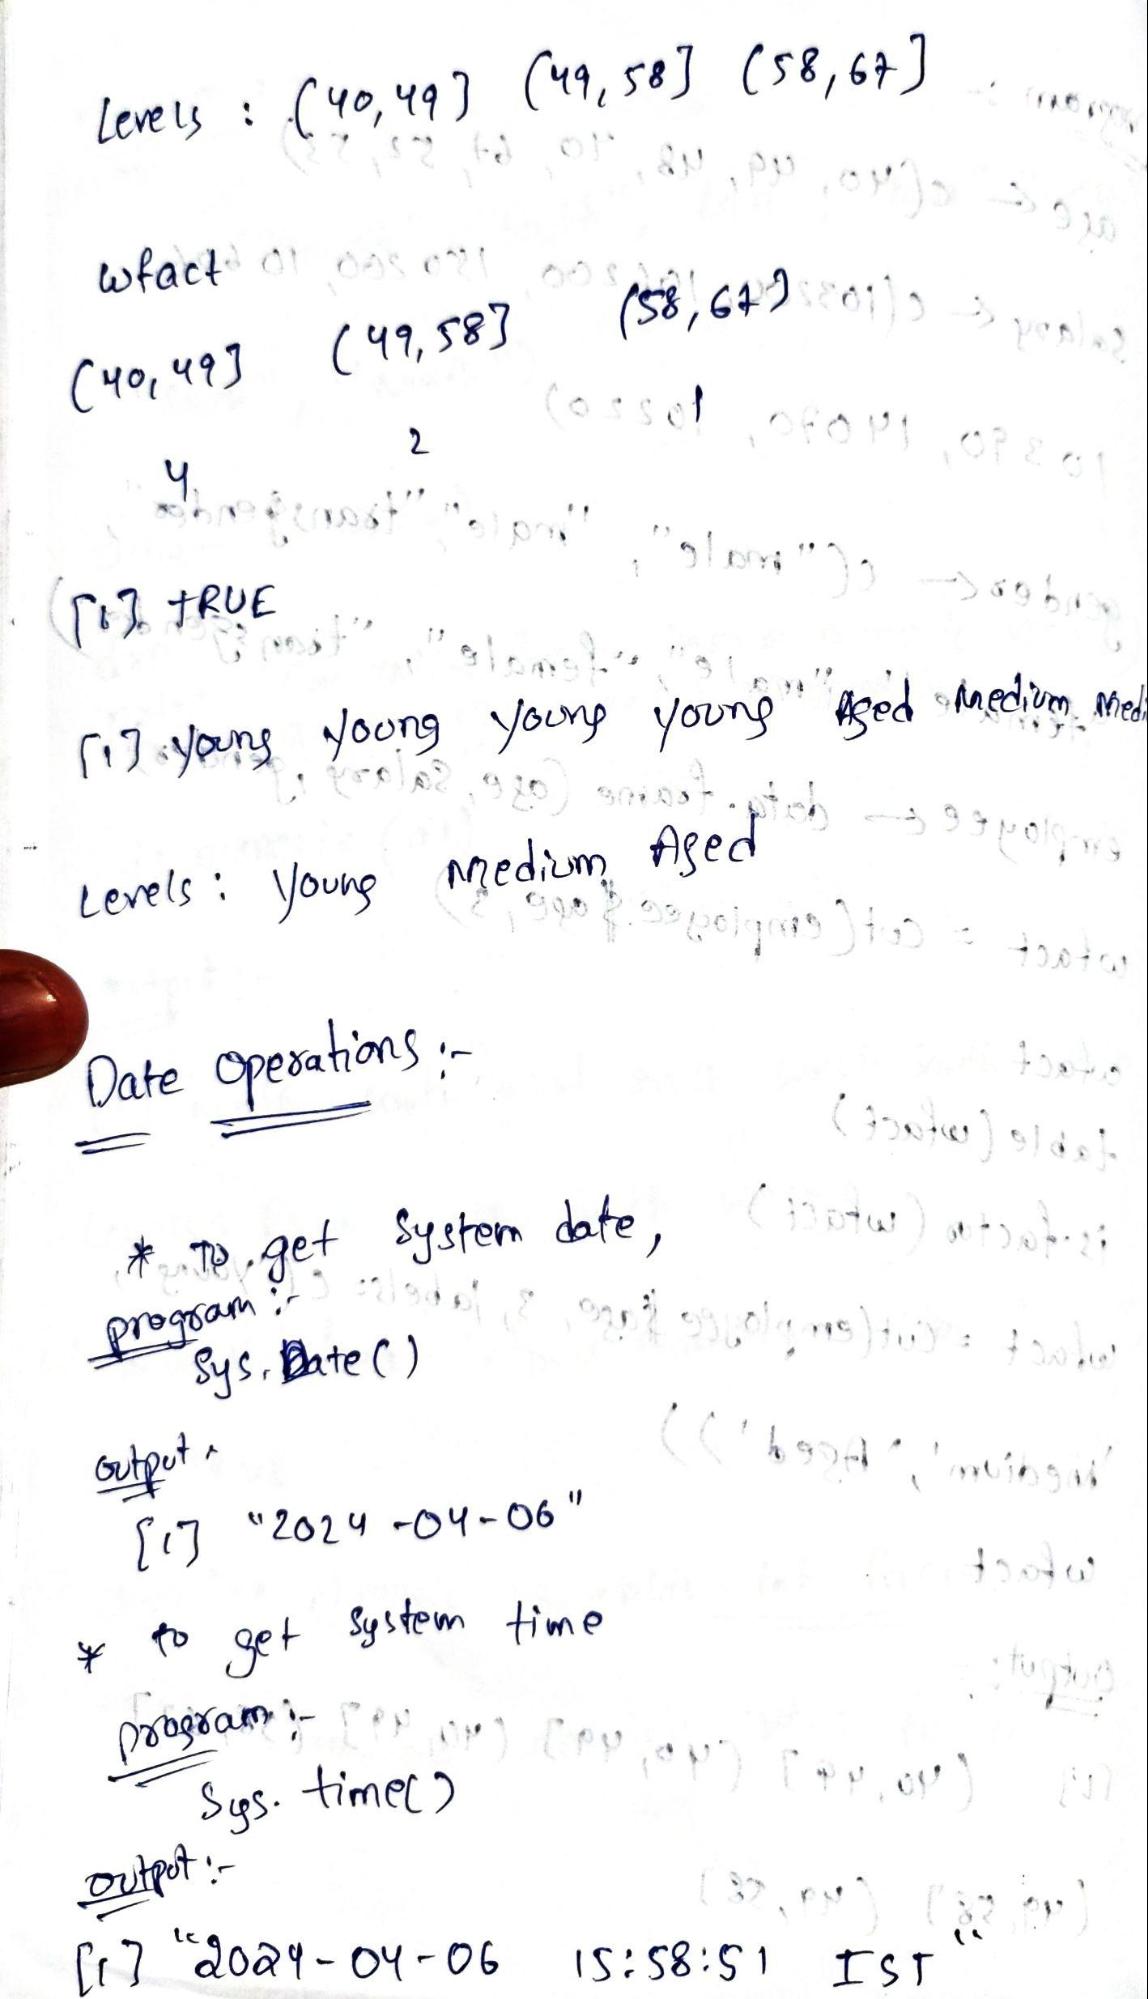 Levels : (40,49] (49,58] (58,67]
wfact
(40,49] (49,58] (58,67]
4 2 1
[1] TRUE
[1] young young young young Aged Medium Medi
Levels : Young Medium Aged
Date Operations :-
* To get System date,
program :-
Sys.Date()
output
[1] "2024-04-06"
* to get system time
program :-
Sys.time()
output :-
[1] "2024-04-06 15:58:51 IST"